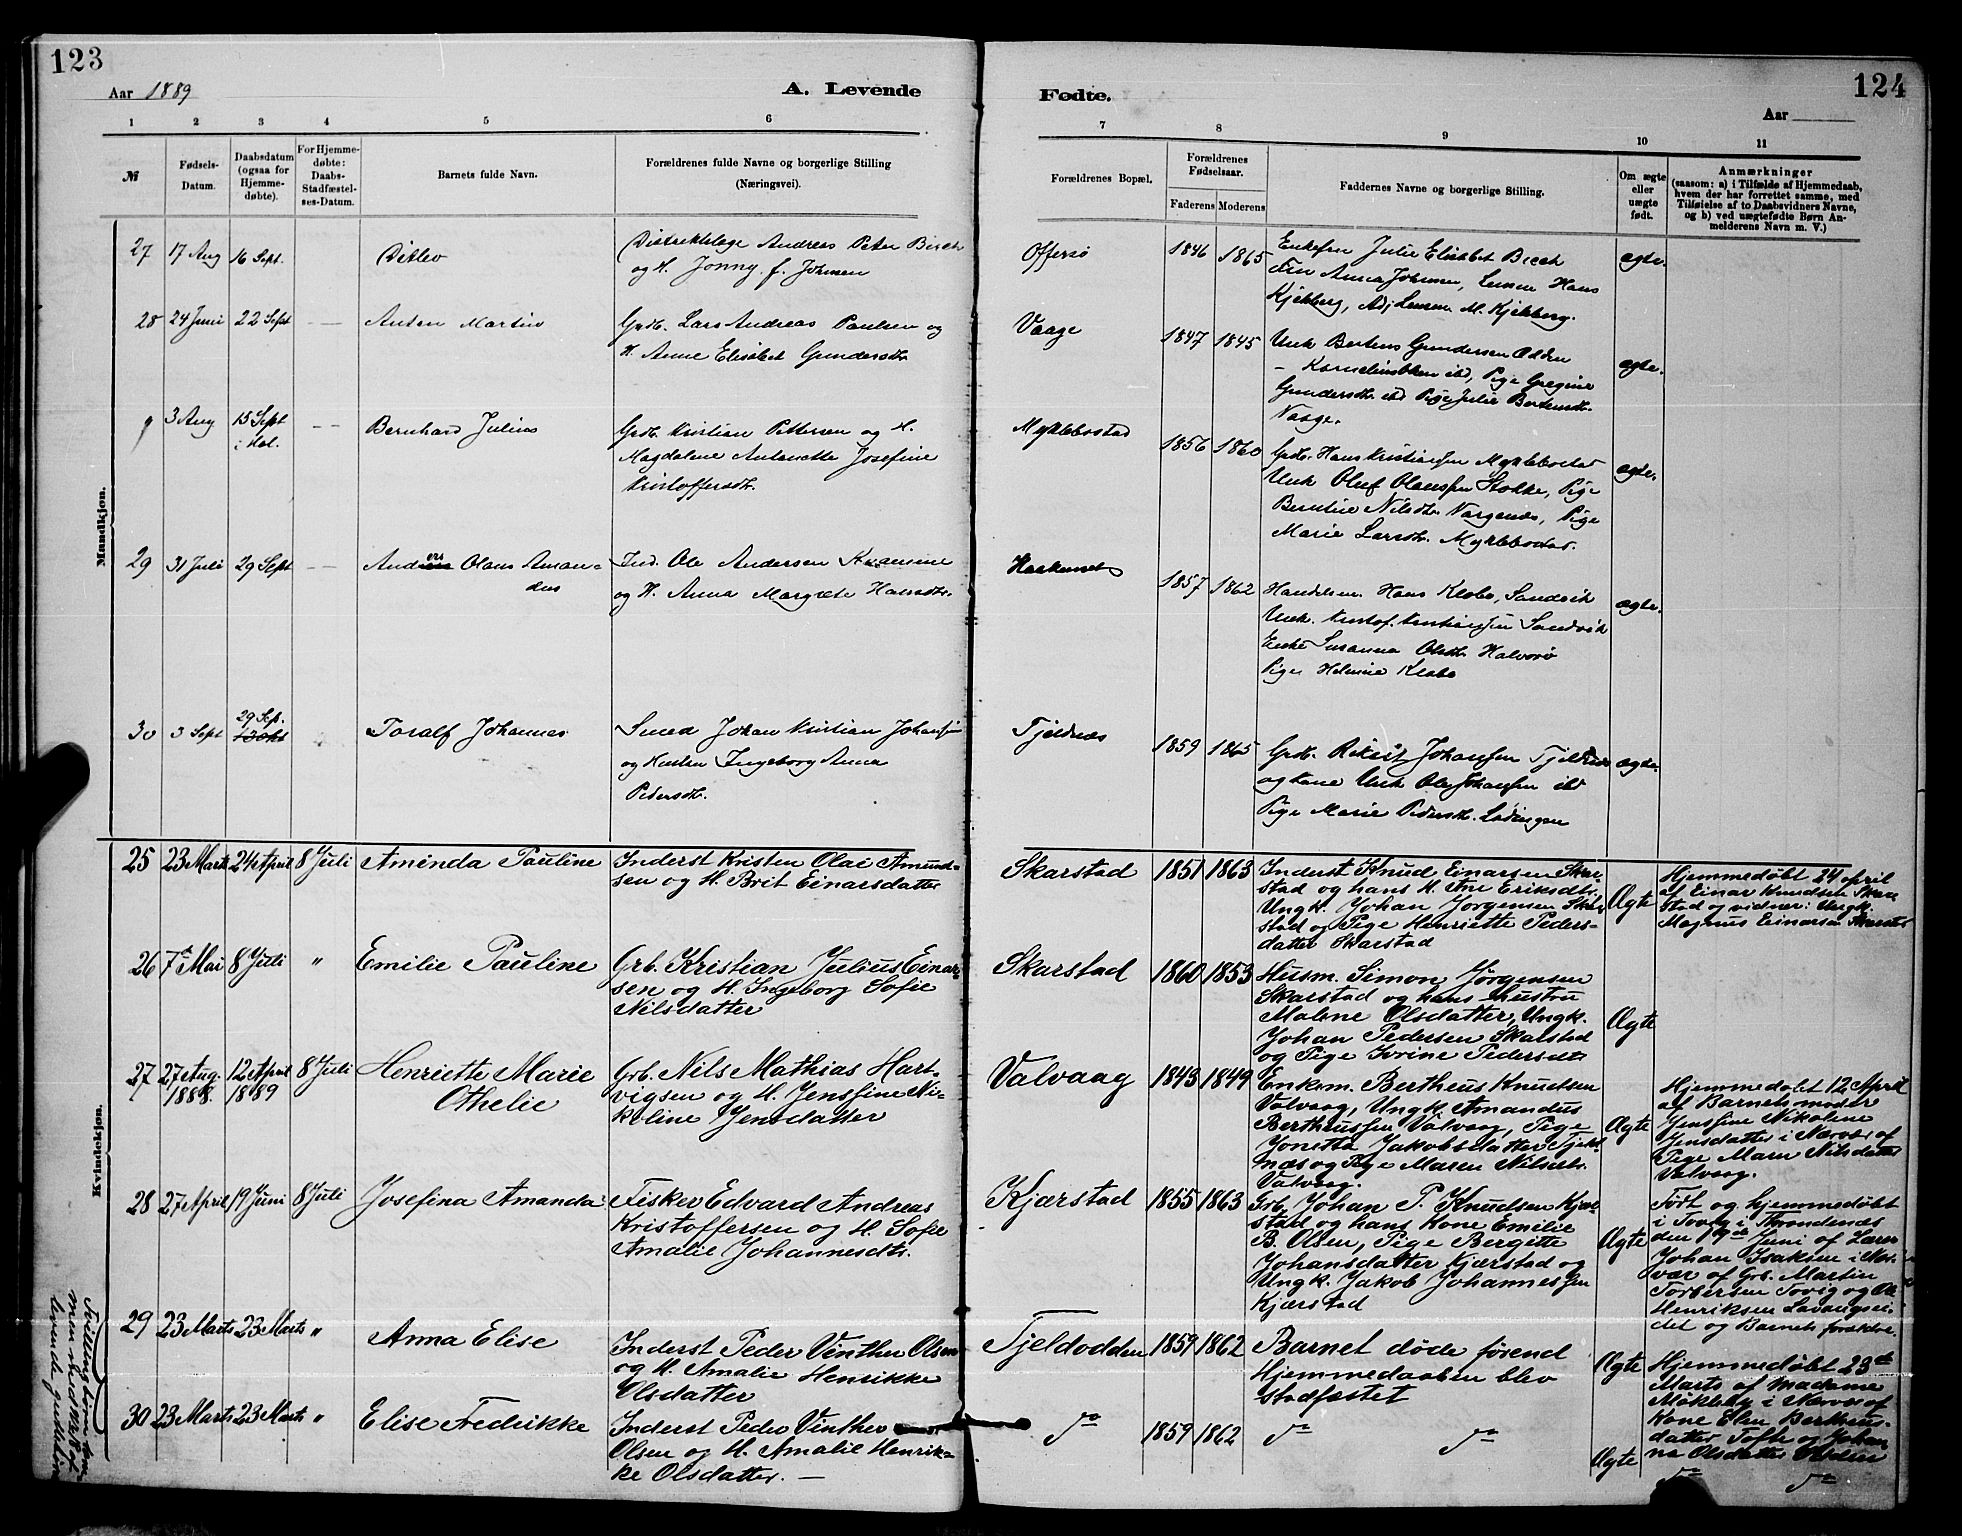 123
Aar 1889
A. Levende
1 2 3 4 5 6
№
Fødsels-
Datum.
Daabsdatum
(ogsaa for
Hjemme-
døbte).
For Hjemme-
døbte:
Daabs-
Stadfæstel-
ses-Datum.
Barnets fulde Navn.
Forældrenes fulde Navne og borgerlige Stilling
(Næringsvei).
Mandkjøn.
27 17 Aug 16 Sept. Ditlev
Distriktslæge Andreas Peter Birch
og H. Jonny f. Johnsen
28 24 Juni 22 Sept — — Anton Martin
Grdb. Lars Andreas Paulsen og
H. Anne Elisabet Gundersdtr.
3 Aug 15 Sept
i Hol. — — Bernhard Julius
Grdb. Kristian Pettersen og H.
Magdalene Antonette Josefine
Kristoffersdtr.
29 31 Juli 29 Sept — — Anders Olaus Aman-
dus
Ind. Ole Andersen
og H. Anna Margrete Hansdtr.
30 3 Sept 29 Sep. Toralf Johannes
Smed Johan Kristian Johansen
og Kusten Ingeborg Anna
Pedersdtr.
Kvindekjøn.
25 23 Marts 24 April 8 Juli Aminda Pauline
Inderst Kristen Olai Amund-
sen og H. Brit Einarsdatter
26 7de Mai 8 Juli " Emilie Pauline
Grb. Kristian Julius Einar-
sen og H. Ingeborg Sofie
Nilsdatter
27 27 Aug. 12 April 8 Juli Henriette Marie
1888. 1889 Othelie
Grb. Nils Mathias Hart-
vigsen og H. Jensfine Ni-
koline Jensdatter
28 27 April 19 Juni 8 Juli Josefina Amanda
Fisker Edvard Andreas
Kristoffersen og H. Sofie
Amalie Johannesdtr.
29 23 Marts 23 Marts " Anna Elise
Inderst Peder Vinther Olsen
og H. Amalie Henrikke
Olsdatter
30 23 Marts 23 Marts " Elise Fredrikke
Inderst Peder Vinther
Olsen og H. Amalie Henrik-
ke Olsdatter. —
Trillingbørn
124
Fødte.
Aar
7 8 9 10 11
Forældrenes Bopæl.
Forældrenes
Fødselsaar.
Faderens Moderens
Faddernes Navne og borgerlige Stilling.
Om ægte
eller
uægte
født.
Anmærkninger
(saasom: a) i Tilfælde af Hjemmedaab,
hvem der har forrettet samme, med
Tilføielse af to Daabsvidners Navne,
og b) ved uægtefødte Børn An-
melderens Navn m. V.)
Offersø 1846 1865
Enkefru Julie Elisabet Birch
Frk Anna Johnsen, Lensm Hans
Kjekberg, Adj Lensm M. Kjekberg.
ægte.
Vaage 1847 1845
Unk Bertens Gundersen Odden
— ibd, Pige Gregine
Gundersdtr. ibd Pige Julie Bertensdtr.
Vaage.
ægte.
Myklebostad 1856 1860
Grdb. Hans Kristiansen Myklebostad
Unk Oluf Olaussen Stokke, Pige
Berntine Nilsdtr. Vargenæs, Pige
Marie Larsdtr. Myklebostad.
ægte.
1857 1862
Handelsm. Hans Klæbo, Sandvik
Unk. Kristof. Kristiansen Sandvik
Enke Susanna Olsdtr. Halvorø
Pige Helmine Klæbo
ægte.
Tjeldnæs 1859 1865
Grdb. Johansen Tjeldnæs
og kone Unk Ole Johansen ibd
Pige Marie Pedersdtr. Lødingen
ægte.
Skarstad 1851 1863
Inderst Knud Einarsen Skar-
stad og hans H. Ane Eriksdtr.
Ungk. Johan Jørgensen Skar-
stad og Pige Henriette Peders-
datter Skarstad
Ægte
Hjemmedøbt 24 april
af Einar Knudsen Skar-
stad og vidner: Ungk.
Magnus Einarsen Skarstad
Skarstad 1860 1853
Husm. Simon Jørgensen
Skarstad og hans Hustru
Malene Olsdatter, Ungk.
Johan Pedersen Skarstad
og Pige Ivrine Pedersdtr
Ægte
Valvaag 1843 1849
Enkem. Bertheus Knudsen
Valvaag, Ungk. Amandus
Bertheussen Valvaag, Pige
Jonetta Jakobsdatter Tjeld-
næs og Pige Maren Nilsdtr.
Valvaag.
Ægte
Hjemmedøbt 12 April
af Barnets moder
Jensfine Nikoline
Jensdatter i Nærvær af
Pige Maren Nilsdatter
Valvaag.
Kjærstad 1855 1863
Grb. Johan P. Knudsen Kjær-
stad og hans Kone Emilie
B. Olsen, Pige Bergitte
Johansdatter Kjærstad og
Ungk. Jakob Johannessen
Kjærstad
Ægte
Født og hjemmedøbt
i Tovig i Throndenæs
den 19de Juni af Lærer
Johan Isaksen i Nær-
vær af Grb. Martin
Torbersen Tovig og Ole
Henriksen Lavangsei-
det og Barnets forældre.
Tjeldodden 1859 1862
Barnet døde førend
Hjemmedaaben blev
stadfæstet
Ægte
Hjemmedøbt 23de
Marts af Madame
Møkleby i Nærvær af
Kone Elen Bertheus-
datter Tofte og Johan-
na Olsdatter Olsden
do 1859 1862 do do
Ægte
do do